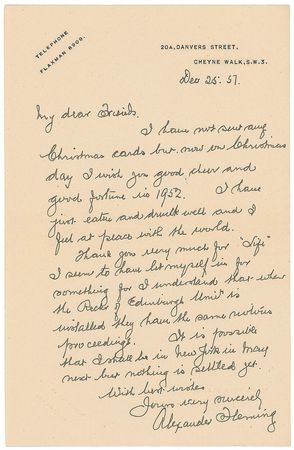 TELEPHONE
FLAXMAN 8909.
20A, DANVERS STREET,
CHEYNE WALK, S.W.3.
Dec 25. 51.
My dear Friends.
I have not sent any
Christmas cards but now on Christmas
day I wish you good cheer and
good fortune in 1952. I have
just eaten and drunk well and I
feel at peace with the world.
Thank you very much for "Life"
I seem to have let myself in for
something for I understand that when
the Rector of Edinburgh Univ is
installed they have the same riotous
proceedings. It is possible
that I shall be in New York in May
next but nothing is settled yet.
With best wishes
Yours very sincerely
Alexander Fleming